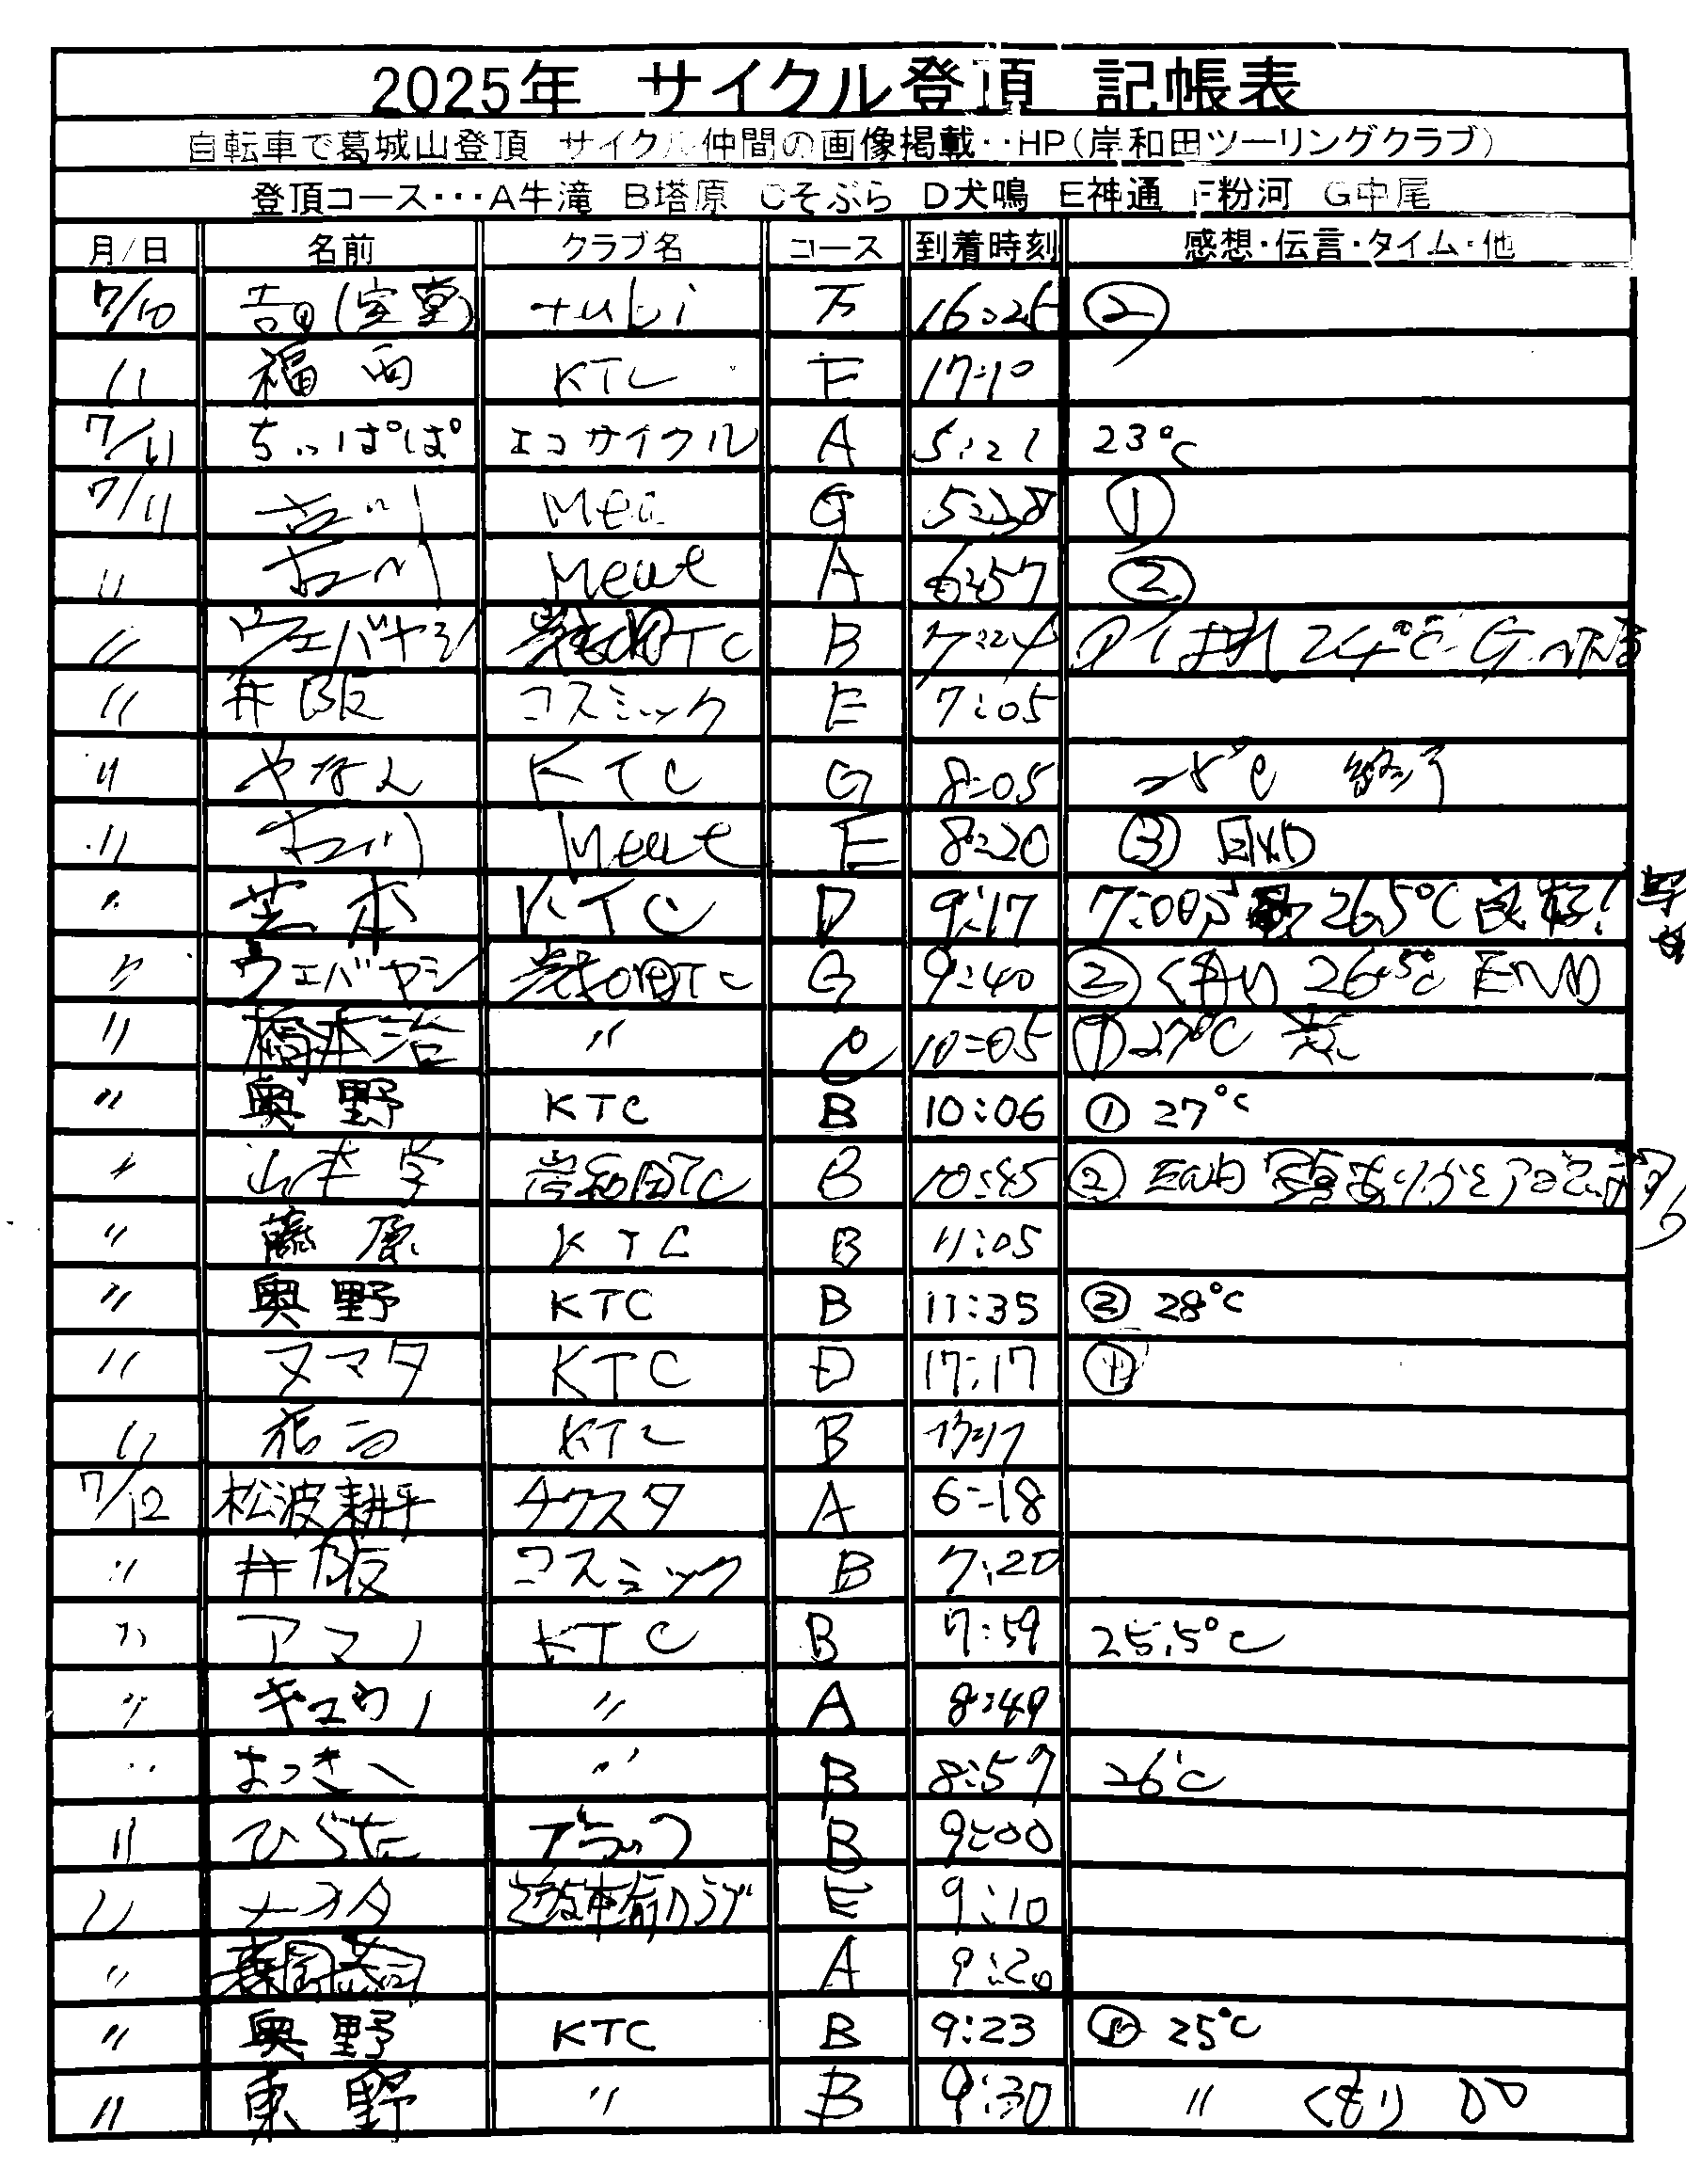 2025年 サイクル登頂 記帳表
自転車で葛城山登頂 サイクル仲間の画像掲載‥HP(岸和田ツーリングクラブ)
登頂コース･･･A牛滝 B塔原 Cそぶら D犬鳴 E神通 F粉河 G中尾
月/日 名前 クラブ名 コース 到着時刻 感想・伝言・タイム・他
7/10 吉田(室堂) tubi 16:25 ②
〃 福西 KTC F 17:10
7/11 ちっぱぱ エコサイクル A 5:21 23℃
7/11 古川 Mea G 5:38 ①
〃 古川 Meat A 6:57 ②
〃 ウエバヤシ 岸和田TC B 7:24 24℃ G
〃 井阪 コスミック E 7:05
〃 やなん KTC G 8:05 28℃ 終了
〃 古川 Meat E 8:20 ③ END
〃 芝本 KTC D 9:17 7:00 26.5℃ 良好!
〃 ウエバヤシ 岸和田TC G 9:40 ② くもり 26.5℃ END
〃 橋本治 〃 C 10:05 ① 27℃
〃 奥野 KTC B 10:06 ① 27℃
〃 山本学 岸和田TC B 10:45 ②
〃 藤原 KTC B 11:05
〃 奥野 KTC B 11:35 ② 28℃
〃 ヌマタ KTC D 17:17 ①
〃 KTC B
7/12 松波耕平 チクスタ A 6:18
〃 井阪 コスミック B 7:20
〃 アマノ KTC B 7:59 25.5℃
〃 キユウノ 〃 A 8:49
〃 まっきー 〃 B 8:57 26℃
〃 ひらた ブラック B 9:00
〃 ナオタ E 9:10
〃 A 9:20
〃 奥野 KTC B 9:23 ① 25℃
〃 東野 〃 B 9:30 〃 くもり